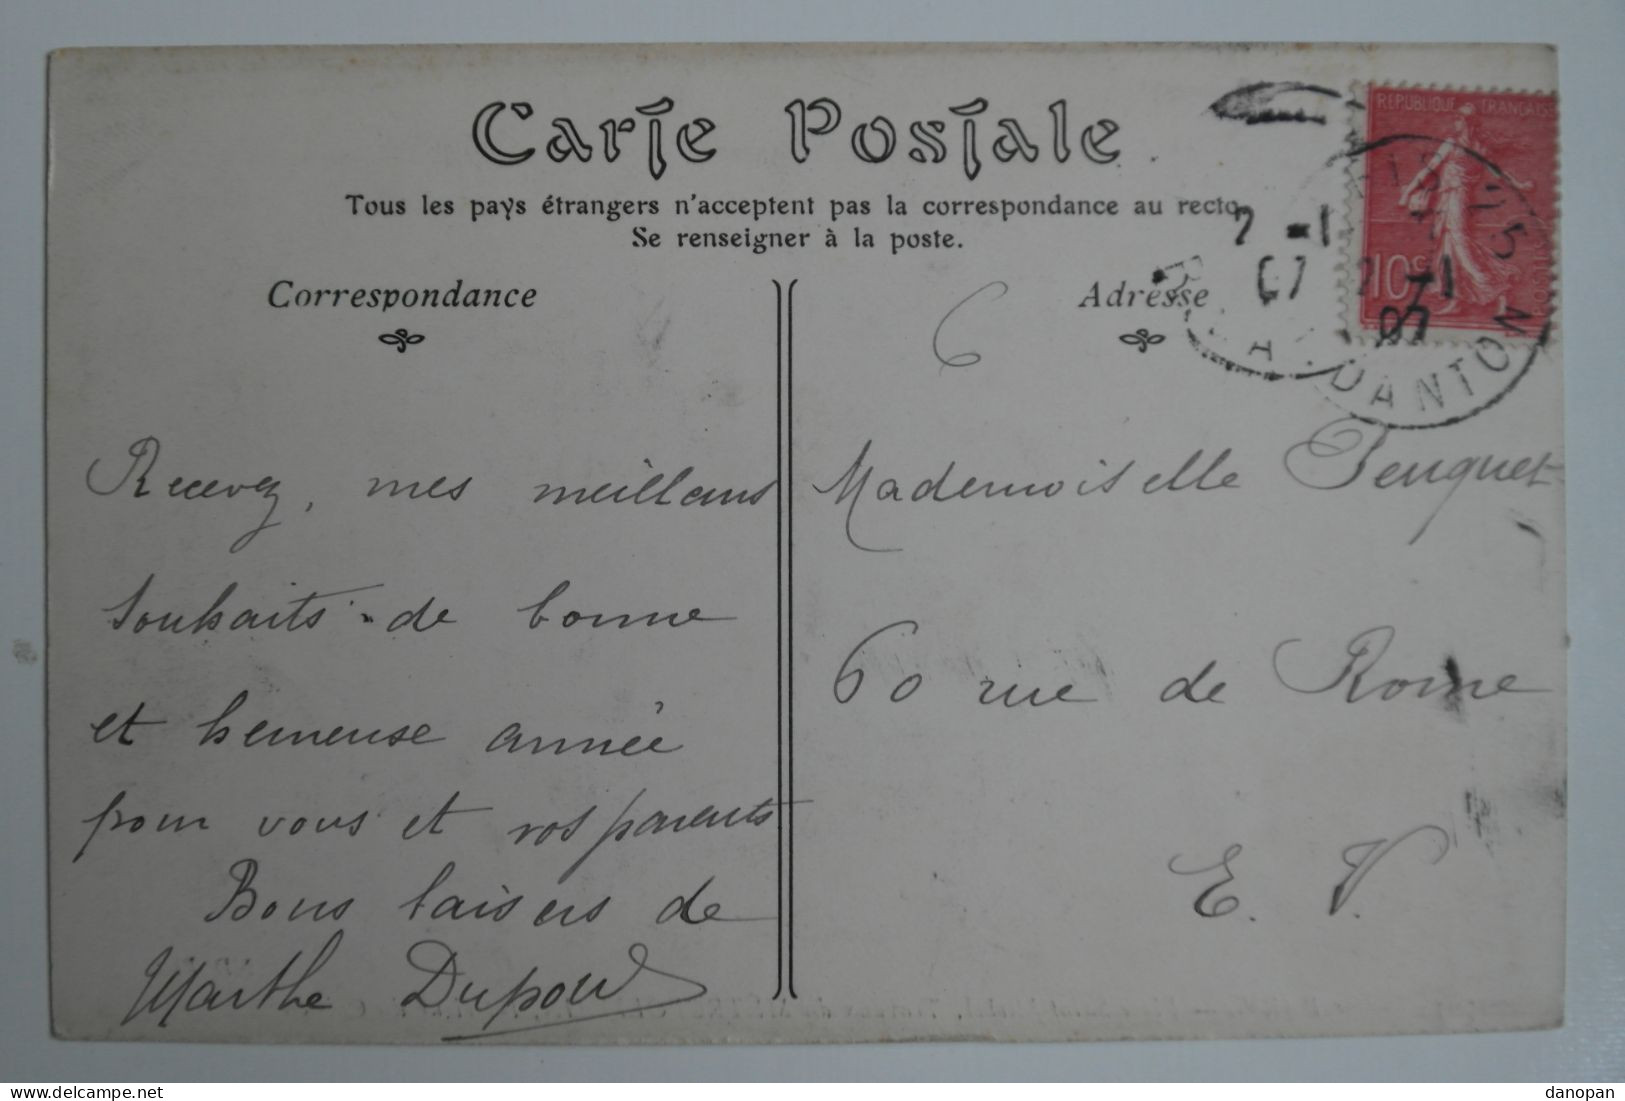 Carte Postale
Tous les pays étrangers n'acceptent pas la correspondance au recto
Se renseigner à la poste.
Correspondance
Adresse
REPUBLIQUE FRANÇAISE
10c
2 -1
07
2 -1
07
25
R. DANTON
6
Recevez, mes meilleurs
souhaits de bonne
et heureuse année
pour vous et vos parents
Bons baisers de
Marthe Dupow
Mademoiselle Peuquet
60 rue de Rome
E. V.
danopan